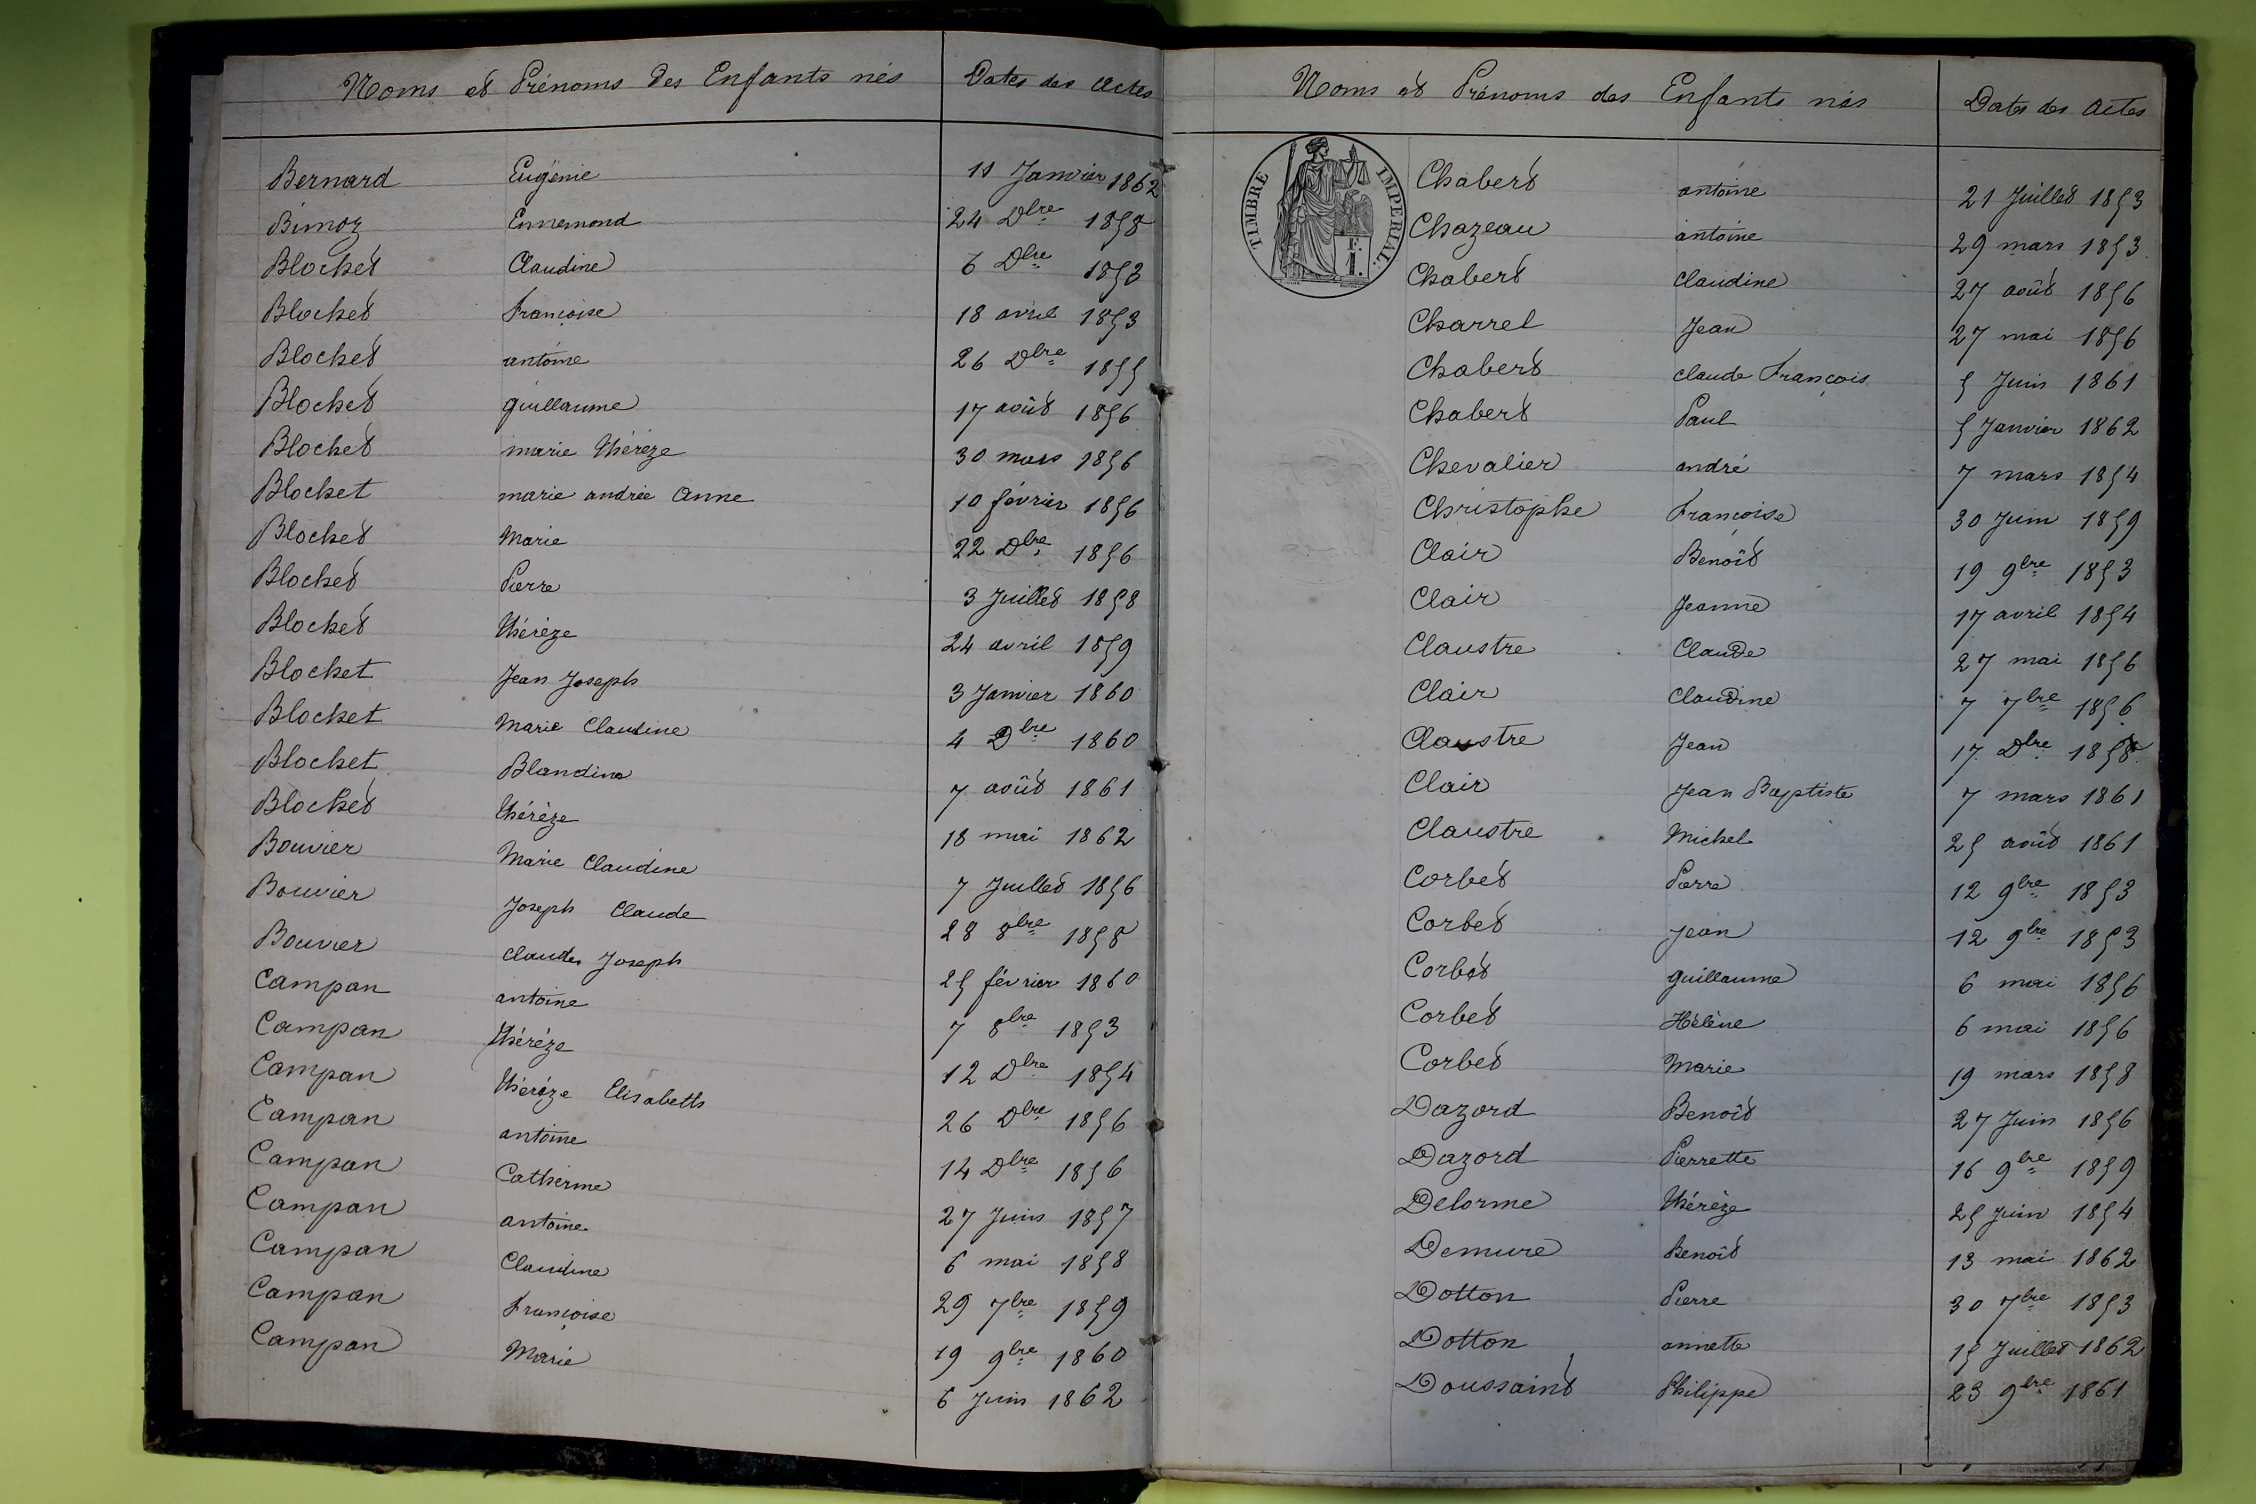 Noms et Prénoms des Enfants nés Dates des actes
Bernard Eugénie 11 Janvier 1862
Bimoz Ennemond 24 Dbre 1858
Blochet Claudine 6 Dbre 1853
Blochet Françoise 18 avril 1853
Blochet antoine 26 Dbre 1855
Blochet guillaume 17 août 1856
Blochet marie Thérèze 30 mars 1856
Blochet marie andrée Anne 10 février 1856
Blochet Marie 22 Dbre 1856
Blochet Pierre 3 Juillet 1858
Blochet Thérèze 24 avril 1859
Blochet Jean Joseph 3 Janvier 1860
Blochet Marie Claudine 4 Dbre 1860
Blochet Blandine 7 août 1861
Blochet Thérèze 18 mai 1862
Bouvier Marie Claudine 7 Juillet 1856
Bouvier Joseph Claude 28 8bre 1858
Bouvier Claude Joseph 25 février 1860
Campan antoine 7 8bre 1853
Campan Thérèze 12 Dbre 1854
Campan Thérèze Elisabeth 26 Dbre 1856
Campan antoine 14 Dbre 1856
Campan Catherine 27 Juin 1857
Campan antoine 6 mai 1858
Campan Claudine 29 7bre 1859
Campan Françoise 19 9bre 1860
Campan Marie 6 Juin 1862
Noms et Prénoms des Enfants nés Dates des Actes
TIMBRE IMPERIAL.
F.
1.
Chabert antoine 21 Juillet 1853
Chazeau antoine 29 mars 1853
Chabert claudine 27 août 1856
Charrel Jean 27 mai 1856
Chabert claude François 5 Juin 1861
Chabert Paul 5 Janvier 1862
Chevalier andré 7 mars 1854
Christophe Françoise 30 Juin 1859
Clair Benoît 19 9bre 1853
Clair Jeanne 17 avril 1854
Claustre Claude 27 mai 1856
Clair Claudine 7 7bre 1856
Claustre Jean 17 Dbre 1858
Clair Jean Baptiste 7 mars 1861
Claustre Michel 25 août 1861
Corbet Pierre 12 9bre 1853
Corbet Jean 12 9bre 1853
Corbet guillaume 6 mai 1856
Corbet Hélène 6 mai 1856
Corbet Marie 19 mars 1858
Dazord Benoît 27 Juin 1856
Dazord Pierrette 16 9bre 1859
Delorme Thérèze 25 Juin 1854
Demure Benoît 13 mai 1862
Dotton Pierre 30 7bre 1853
Dotton annette 15 Juillet 1862
Doussaint Philippe 23 9bre 1861